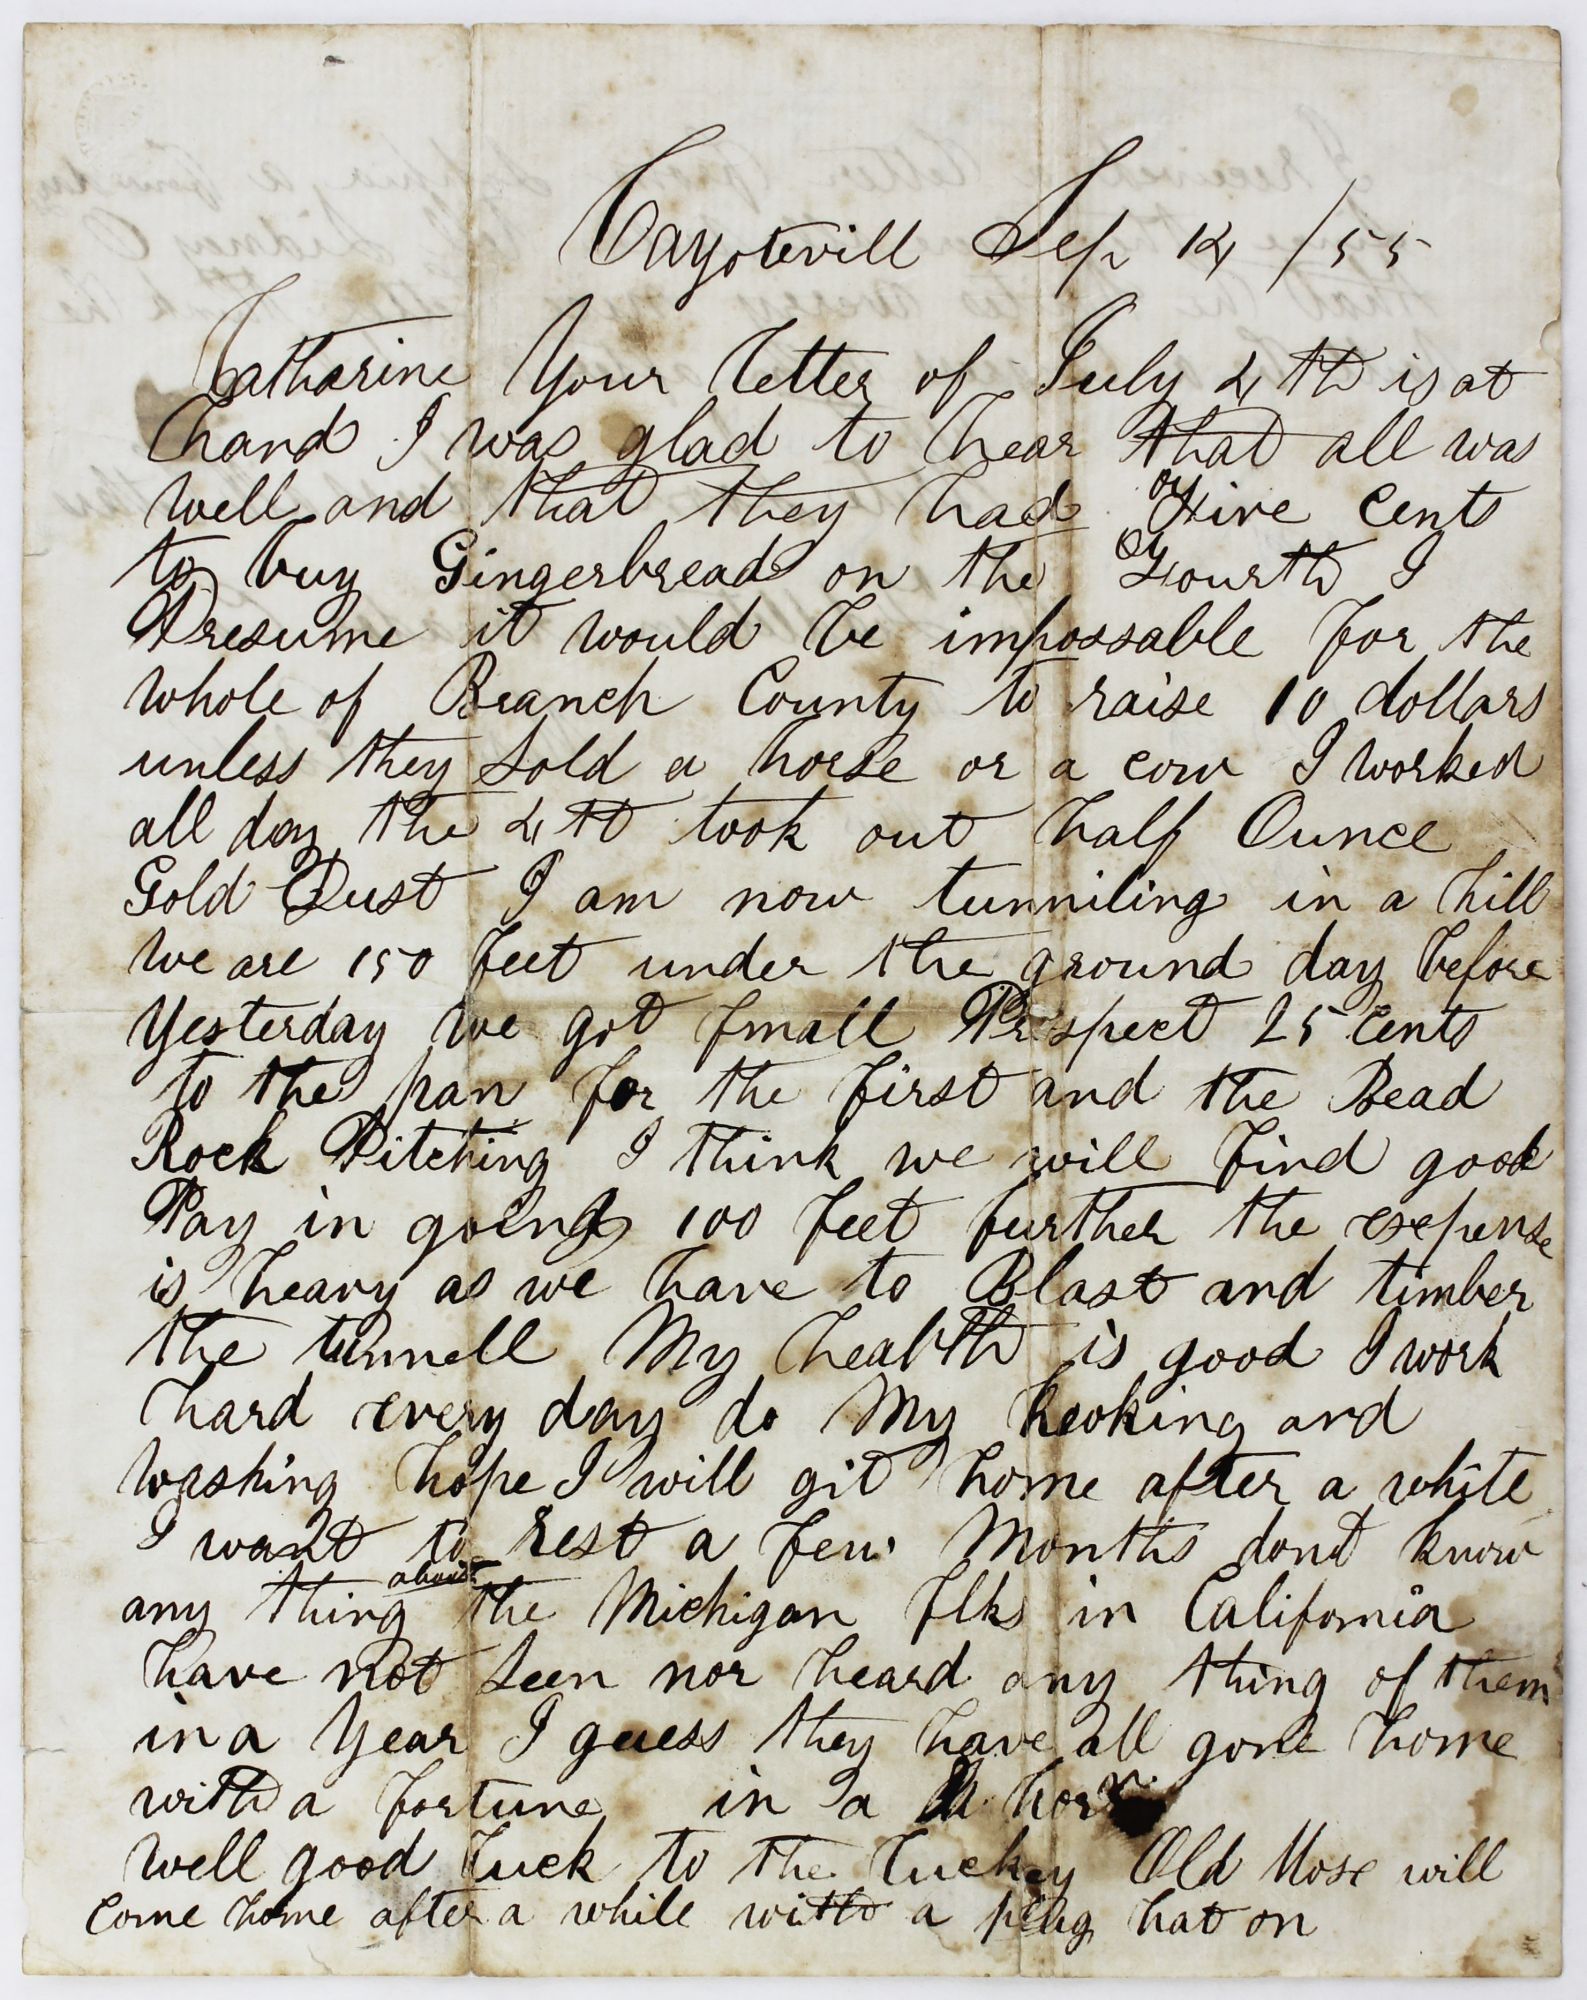 Cayotevill Sep 14 /55
Catharine Your letter of July 4th is at
hand I was glad to hear that all was
well and that they had Five cents
to buy Gingerbread on the Fourth I
Presume it would be impossable for the
whole of Branch County to raise 10 dollars
unless they sold a horse or a cow I worked
all day the 4th took out half Ounce
Gold Dust I am now tunniling in a hill
we are 150 feet under the ground day before
yesterday we got small Prospect 25 cents
to the pan for the first and the Bead
Rock Pitching I think we will find good
Pay in going 100 feet further the expense
is heavy as we have to Blast and timber
the tunnell My health is good I work
hard every day do My kooking and
washing hope I will git home after a while
I want to rest a few Months dont know
any thing about the Michigan flks in California
have not seen nor heard any thing of them
in a Year I guess they have all gone home
with a fortune in a horn
well good luck to the luckey Old Mose will
come home after a while with a plug hat on